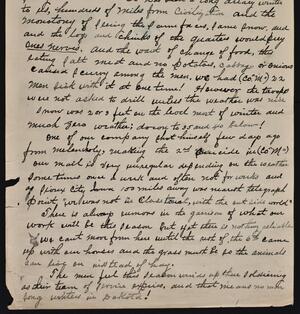 to it, hundreds of miles from and the
monotony of seeing the same faces, same snow, and
and the log and chinks of the quarters would try
ones nerves. and the want of change of food, the
eating salt meat and no Potatos, Cabbage or onions
caused scurvy among the men. we had (Co M) 22
men sick with it at one time! However the troops
were not asked to drill unless the weather was nice
Snow was 2 on 3 feet on the level most of winter and
much Zero weather; down to 35 and 40 below!
One of our company shot himself four days ago
from melancholy, making the 2nd Suicide in (Co M)
our mail is very irregular depending on the weather
sometimes once a week and often not for weeks and
Sioux City Iowa 500 miles away was nearest telegraph
Point, with the out side world
There is always rumors in the garrison of what our
work will be this season but yet there is nothing reliable
we cant move from here until the rest of the 6th came
up with our horses and the grass must be so the animals
can live on instead of hay.
The men feel this season winds up their Soldiering
as their term of Service expires, and that means no more
long winters in Dakota!